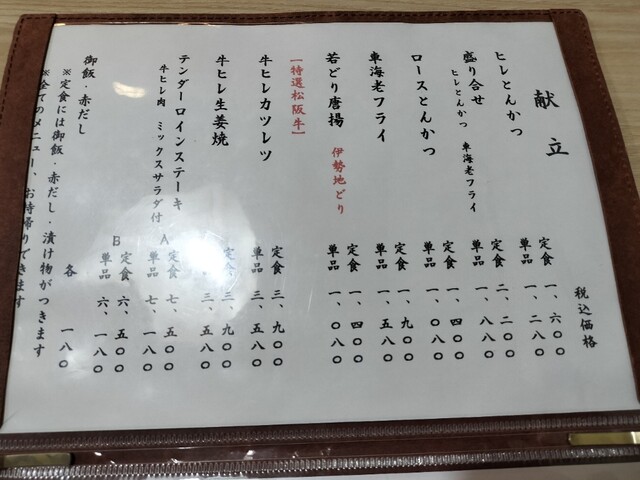 献立
税込価格
ヒレとんかつ
定食 一、六〇〇
単品 一、二八〇
盛り合せ
ヒレとんかつ 車海老フライ
定食 二、二〇〇
単品 一、八八〇
ロースとんかつ
定食 一、四〇〇
単品 一、〇八〇
車海老フライ
定食 一、九〇〇
単品 一、五八〇
若どり唐揚 伊勢地どり
定食 一、四〇〇
単品 一、〇八〇
【特選松阪牛】
牛ヒレカツレツ
定食 三、九〇〇
単品 三、五八〇
牛ヒレ生姜焼
定食 三、九〇〇
三、五八〇
テンダーロインステーキ
牛ヒレ肉 ミックスサラダ付
A
定食 七、五〇〇
単品 七、一八〇
B
定食 六、五〇〇
単品 六、一八〇
御飯・赤だし
各 一八〇
※定食には御飯・赤だし・漬け物がつきます
※全てのメニュー、お持帰りできます